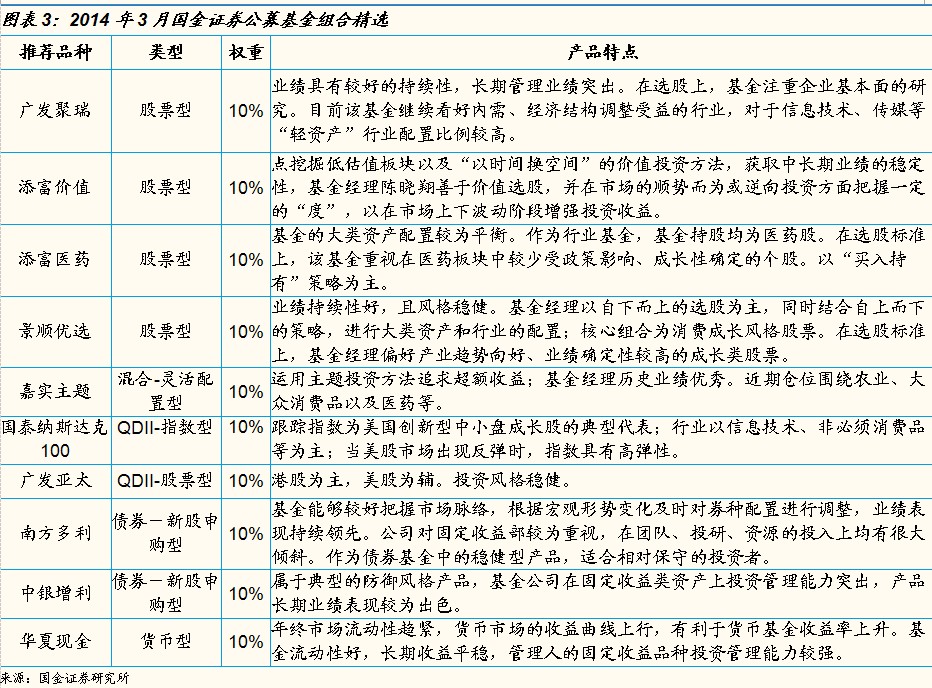 图表 3：2014 年 3 月国金证券公募基金组合精选
推荐品种 类型 权重 产品特点
广发聚瑞 股票型 10%
业绩具有较好的持续性，长期管理业绩突出。在选股上，基金注重企业基本面的研
究。目前该基金继续看好内需、经济结构调整受益的行业，对于信息技术、传媒等
“轻资产”行业配置比例较高。
添富价值 股票型 10%
点挖掘低估值板块以及“以时间换空间”的价值投资方法，获取中长期业绩的稳定
性，基金经理陈晓翔善于价值选股，并在市场的顺势而为或逆向投资方面把握一定
的“度”，以在市场上下波动阶段增强投资收益。
添富医药 股票型 10%
基金的大类资产配置较为平衡。作为行业基金，基金持股均为医药股。在选股标准
上，该基金重视在医药板块中较少受政策影响、成长性确定的个股。以“买入持
有”策略为主。
景顺优选 股票型 10%
业绩持续性好，且风格稳健。基金经理以自下而上的选股为主，同时结合自上而下
的策略，进行大类资产和行业的配置；核心组合为消费成长风格股票。在选股标准
上，基金经理偏好产业趋势向好、业绩确定性较高的成长类股票。
嘉实主题 混合-灵活配
置型 10%
运用主题投资方法追求超额收益；基金经理历史业绩优秀。近期仓位围绕农业、大
众消费品以及医药等。
国泰纳斯达克
100 QDII-指数型 10%
跟踪指数为美国创新型中小盘成长股的典型代表；行业以信息技术、非必须消费品
等为主；当美股市场出现反弹时，指数具有高弹性。
广发亚太 QDII-股票型 10% 港股为主，美股为辅。投资风格稳健。
南方多利 债券－新股申
购型 10%
基金能够较好把握市场脉络，根据宏观形势变化及时对券种配置进行调整，业绩表
现持续领先。公司对固定收益部较为重视，在团队、投研、资源的投入上均有很大
倾斜。作为债券基金中的稳健型产品，适合相对保守的投资者。
中银增利 债券－新股申
购型 10%
属于典型的防御风格产品，基金公司在固定收益类资产上投资管理能力突出，产品
长期业绩表现较为出色。
华夏现金 货币型 10%
年终市场流动性趋紧，货币市场的收益曲线上行，有利于货币基金收益率上升。基
金流动性好，长期收益平稳，管理人的固定收益品种投资管理能力较强。
来源：国金证券研究所